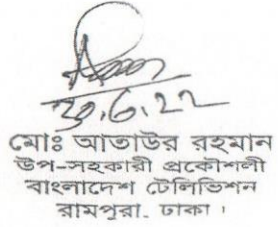 ২০.6.২২
মোঃ আতাউর রহমান
উপ-সহকারী প্রকৌশলী
বাংলাদেশ টেলিভিশন
রামপুরা, ঢাকা।